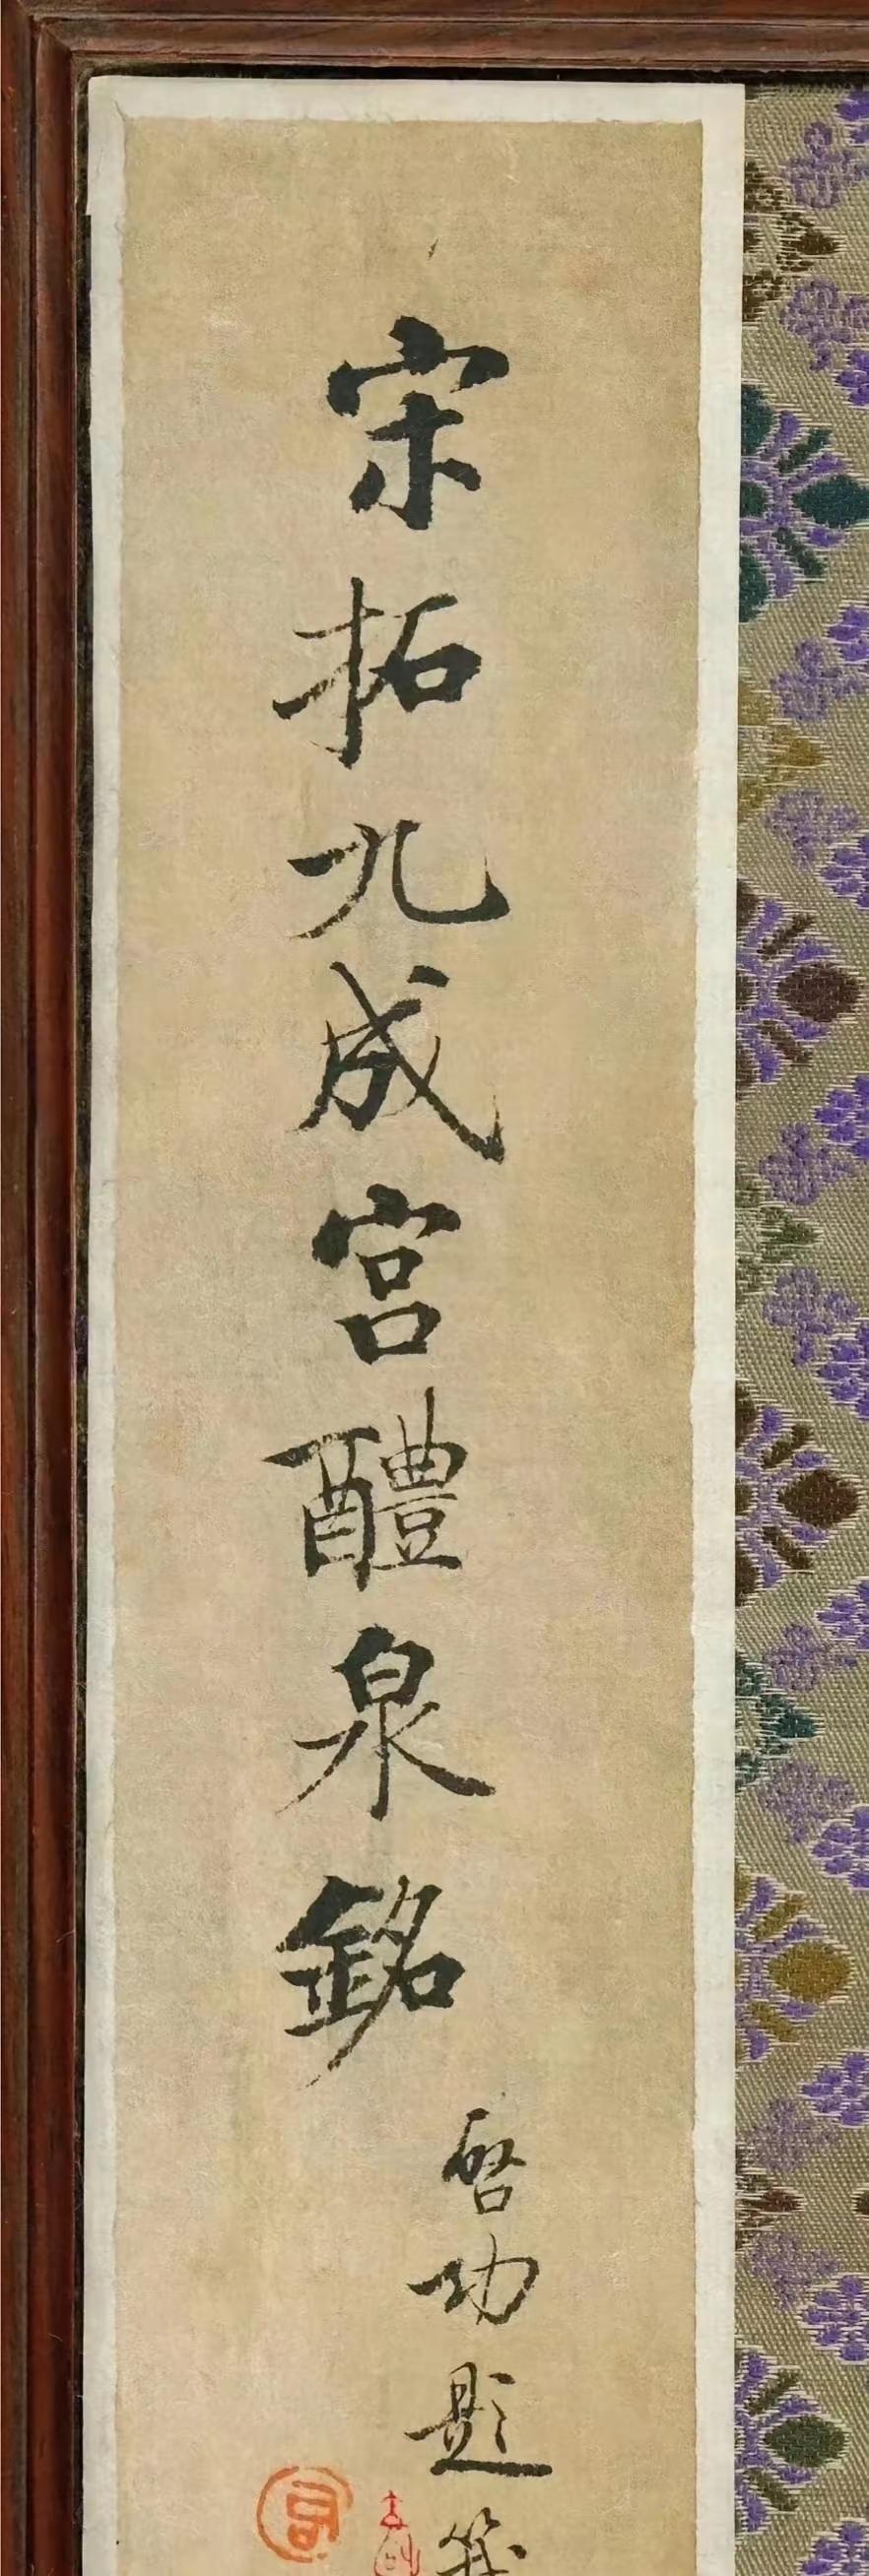 宋拓九成宮醴泉銘
啓功題簽